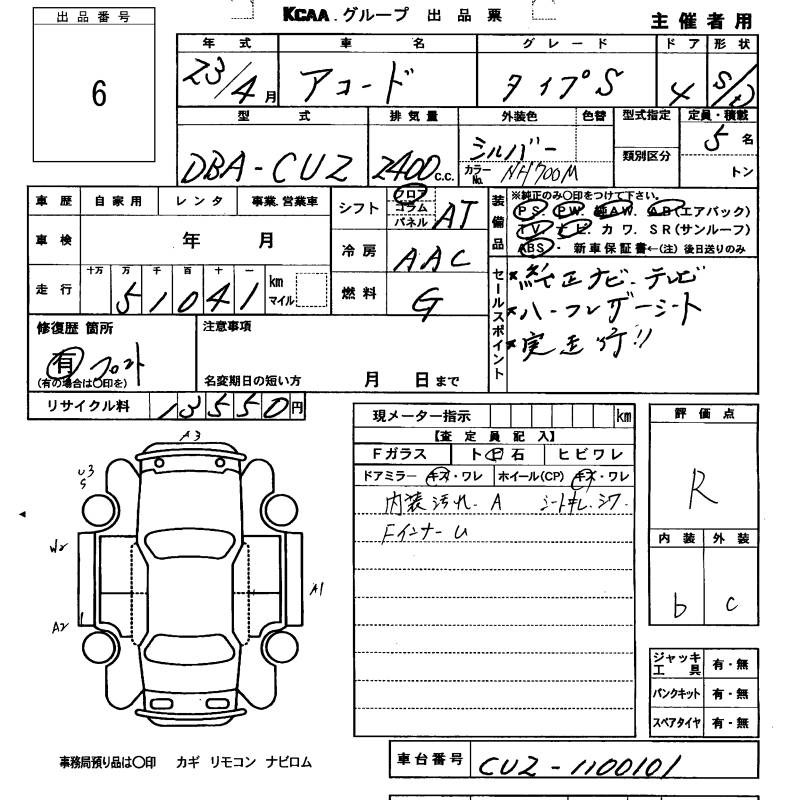 KCAA.グループ 出品票
主催者用
出品番号
6
年式 車名 グレード ドア 形状
23/4月 アコード タイプS 4 S/D
型式 排気量 外装色 色替 型式指定 定員・積載
DBA-CU2 2400c.c. シルバー 5名
カラーNo. NH700M 類別区分 トン
車歴 自家用 レンタ 事業.営業車
車検 年 月
十万 万 千 百 十 一
走行 51041 km マイル
シフト フロア コラム パネル AT
冷房 AAC
燃料 G
装備品
※純正のみ〇印をつけて下さい。
PS. PW. 純AW. AB(エアバック)
TV. ナビ. カワ. SR(サンルーフ)
ABS・ 新車保証書←(注)後日送りのみ
セールスポイント
*純正ナビ.テレビ
*ハーフレザーシート
*実走行!!
修復歴 箇所
有 フロント
(有の場合は〇印を)
注意事項
名変期日の短い方 月 日まで
リサイクル料 13550円
現メーター指示 km
【査定員記入】
Fガラス ト石 ヒビワレ
ドアミラー キズ・ワレ ホイール(CP) キズ・ワレ
内装汚れ.A シートキレ.シワ.
FインナーU
評価点
R
内装 外装
b c
A3
U3
S
W2
A2
A1
ジャッキ工具 有・無
パンクキット 有・無
スペアタイヤ 有・無
事務局預り品は〇印 カギ リモコン ナビロム
車台番号 CU2-1100101